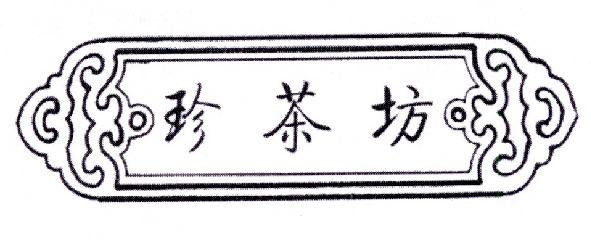 珍茶坊